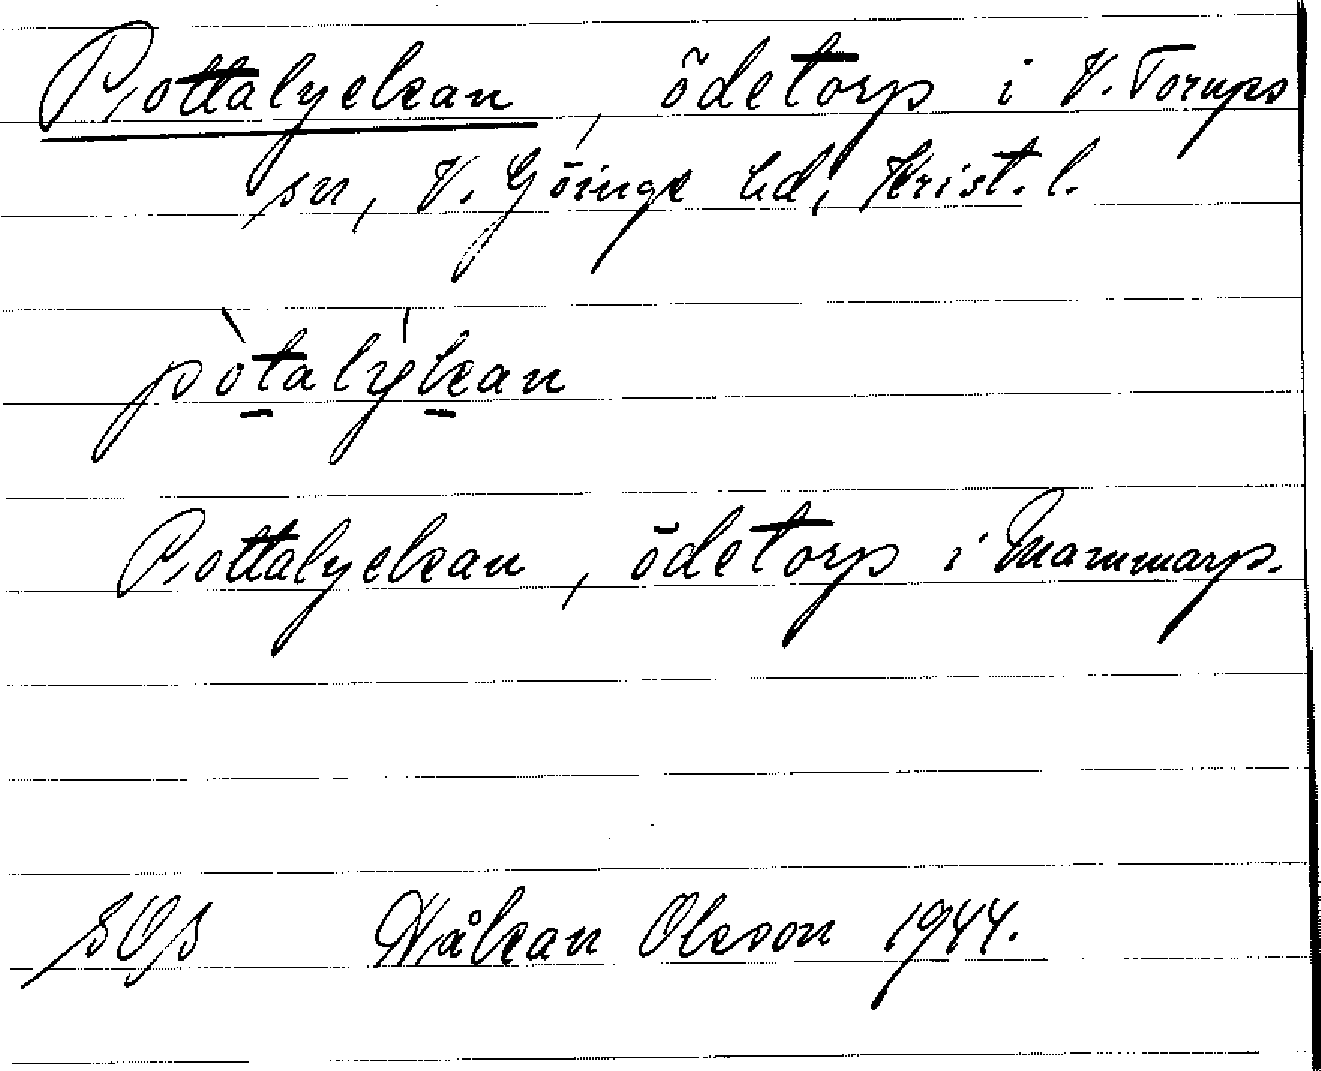 Pottalyckan, ödetorp i V. Torups
sn, V. Göinge hd, Krist. l.
pòtalýkan
Pottalyckan, ödetorp i Mammarp.
SOS Håkan Olsson 1944.